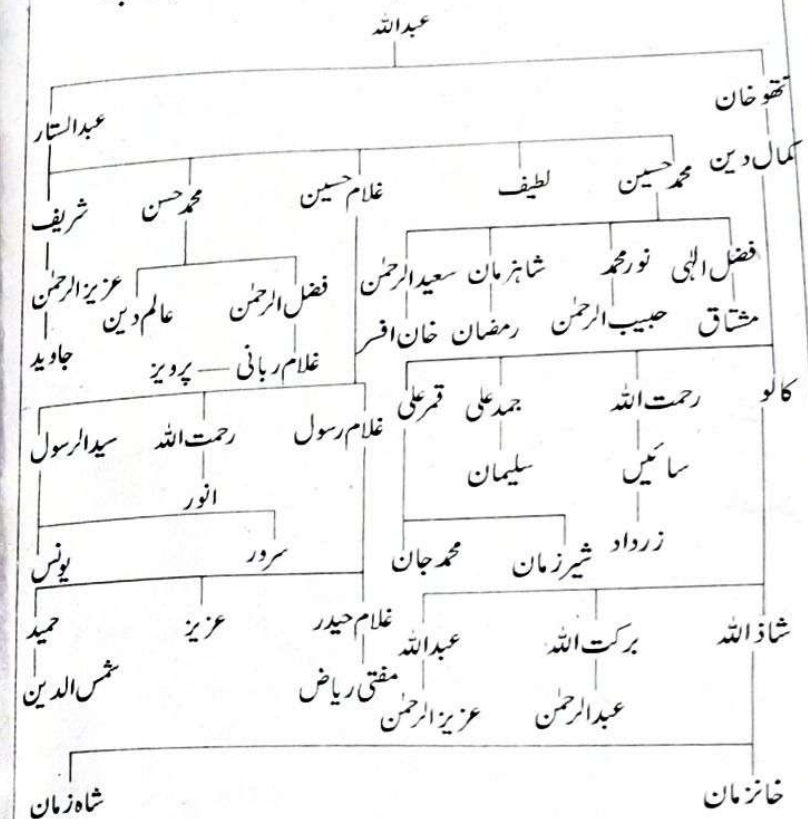 عبداللہ
نتھو خان عبدالستار
کمال دین محمد حسین لطیف غلام حسین محمد حسن شریف
فضل الٰہی نور محمد شاہزمان سعید الرحمٰن فضل الرحمٰن عالم دین عزیز الرحمٰن
مشتاق حبیب الرحمٰن رمضان خان افسر غلام ربانی — پرویز جاوید
کالو رحمت اللہ جمد علی قمر علی غلام رسول رحمت اللہ سید الرسول
سائیں سلیمان انور
زرداد شیر زمان محمد جان سرور یونس
شاذ اللہ برکت اللہ عبداللہ غلام حیدر عزیز حمید
عبدالرحمٰن عزیز الرحمٰن مفتی ریاض شمس الدین
خانزمان شاہ زمان